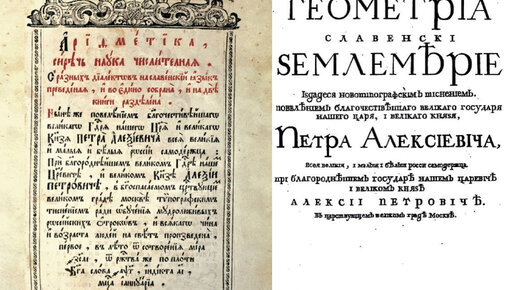 Арїѳметїка,
сирѣчь наѹка числителная.
С разныхъ дїалектовъ на славенскїй ѧзыкъ
преведеная, и во едино собрана, и на двѣ
книги раздѣлена
же повелѣнїемъ благочестивѣйшагѡ
великагѡ нашегѡ и великагѡ
Кнѧзѧ Петра Алеѯїевича всеѧ великїѧ
и малыѧ и бѣлыѧ рѡссїи самодержца.
При благороднѣйшемъ великомъ нашемъ
и великомъ Алеѯїи
Петровичѣ, въ богоспасаемомъ царствѹющемъ
великомъ градѣ москвѣ типографскимъ
тисненїемъ ради ѡбѹченїѧ мѹдролюбивыхъ
рѡссїйскихъ ѻтрокѡвъ, и всѧкагѡ чина и
возраста людей на свѣтъ произведена,
первое, въ лѣто ѿ сотворенїѧ мїра
ѿ ржтва же по плоти
Бга слова индікта
мца їаннѹарїа
ГЕОМЕТРІА
СЛАВЕНСКІ
ЅЕМЛЕМѢРІЕ
Іздадесѧ новотіпографскімъ тісненіемъ.
повелѣніемъ благочестівѣішаго велікаго государя
нашего царя, і велікаго князя,
ПЕТРА АЛЕКСІЕВІЧА,
всея велікія, і малыя і бѣлыя россіі самодержца.
прі благороднѣішемъ государѣ нашемъ царевічѣ
і велікомъ князѣ
АЛЕКСІІ ПЕТРОВІЧѢ.
Въ царствующемъ велікомъ градѣ Москвѣ.